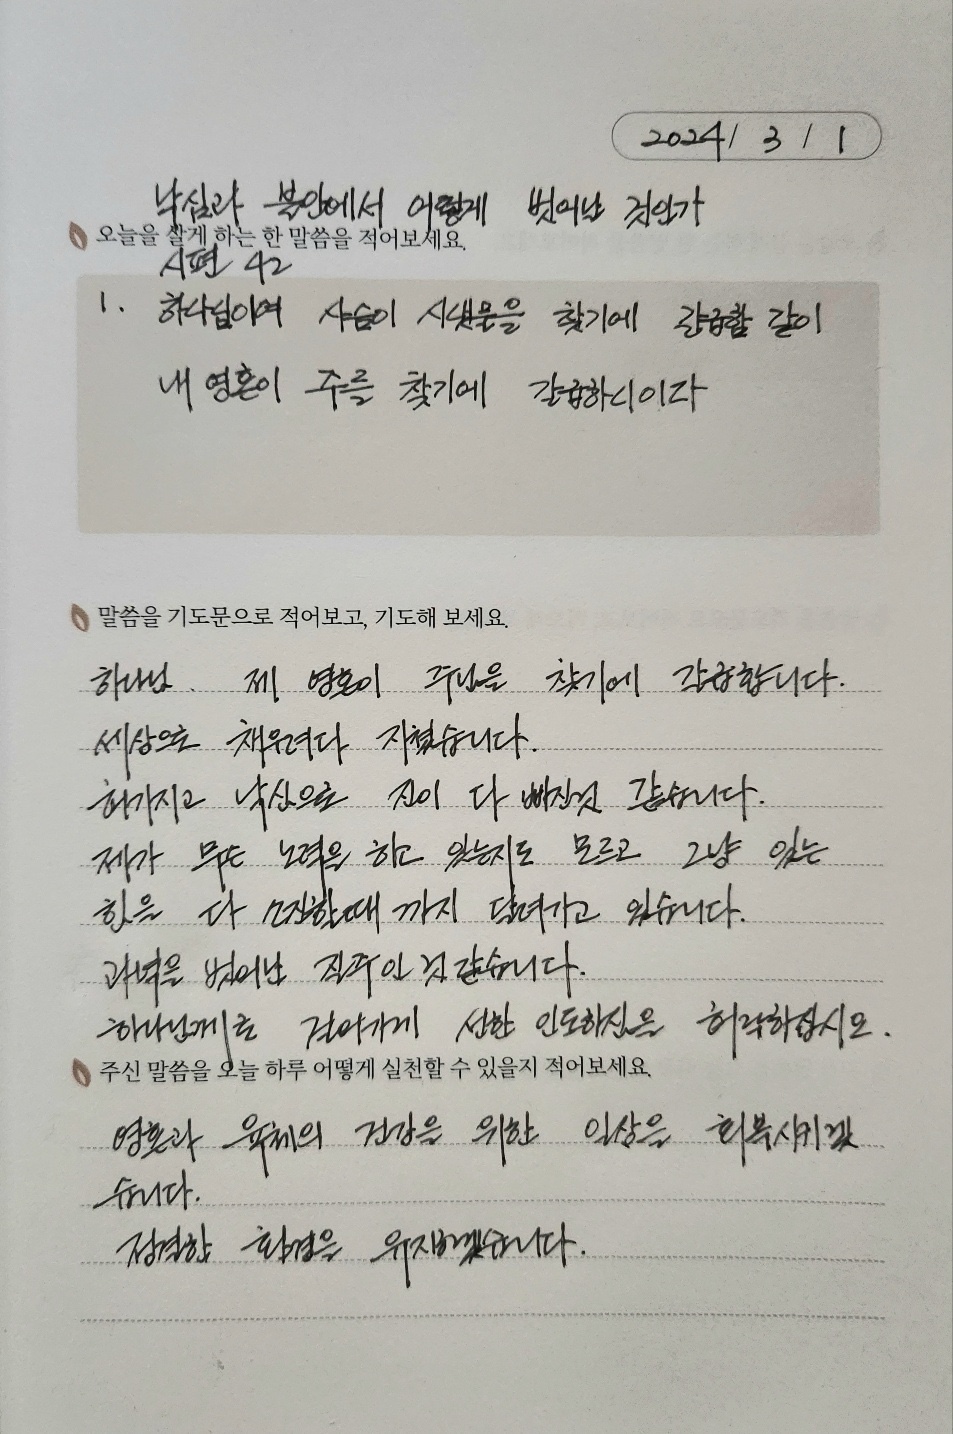 2024/ 3 / 1
낙심과 불안에서 어떻게 벗어날 것인가
오늘을 살게 하는 한 말씀을 적어보세요.
시편 42
1. 하나님이여 사슴이 시냇물을 찾기에 갈급함 같이
내 영혼이 주를 찾기에 갈급하니이다
말씀을 기도문으로 적어보고, 기도해 보세요.
하나님. 제 영혼이 주님을 찾기에 갈급합니다.
세상으로 채우려다 지쳤습니다.
진이 다 빠진것 같습니다.
제가 무슨 노력을 하고 있는지도 모르고 그냥 있는
힘을 다 소진할때 까지 달려가고 있습니다.
과녁을 벗어난 질주인 것 같습니다.
하나님께로 걸어가게 선한 인도하심을 허락하십시오.
주신 말씀을 오늘 하루 어떻게 실천할 수 있을지 적어보세요.
영혼과 육체의 건강을 위한 일상을 회복시키겠
습니다.
정결한 환경을 유지하겠습니다.